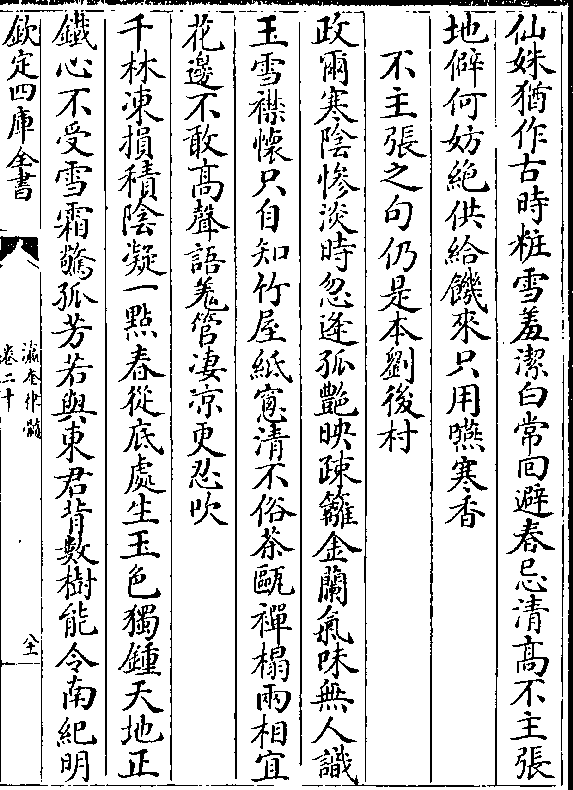 仙姝猶作古時粧雪羞潔白常回避春忌清髙不主張
地僻何妨絶供給饑來只用嚥寒香
不主張之句仍是本劉後村
政爾寒陰慘淡時忽逢孤艶映疎籬金蘭氣味無人識
玉雪襟懷只自知竹屋紙窻清不俗茶甌禪榻兩相宜
花邊不敢髙聲語羗管凄凉更忍吹
千林凍損積隂凝一點春從底處生玉色獨鍾天地正
鐵心不受雪霜驚孤芳若與東君背數樹能令南紀明
欽定四庫全書
瀛奎律髓
卷二十